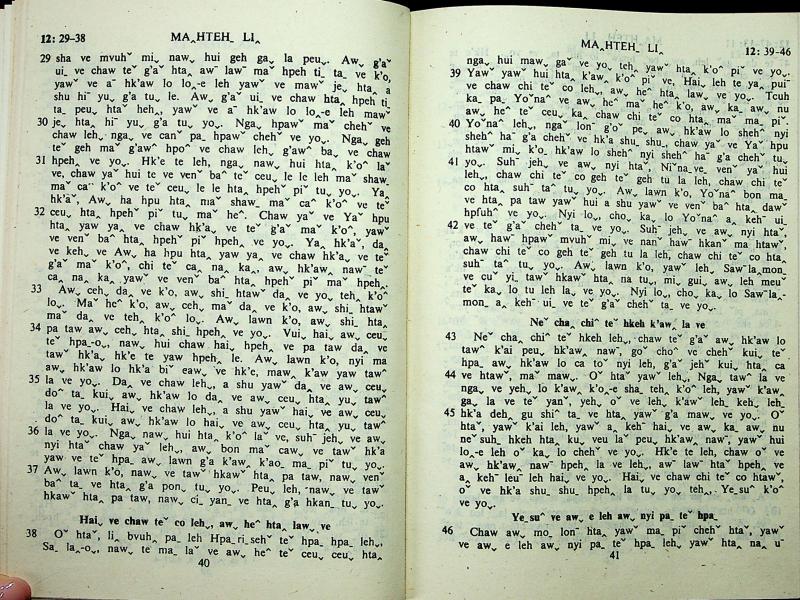 12: 29-38
MAꞈHTEHˍ LIꞈ
29 sha ve mvuhˇ miˬ nawˬ hui geh gaˬ la peuˬ. Awˬ g'aˇ
uiˍ ve chaw teˇ g'aˇ htaˬ awˇ lawˉ maˇ hpeh tiˍ taˍ ve k'oˬ
yawˇ ve aˉ hk'aw lo loꞈ-e leh yawˇ ve mawˇ jeˬ htaꞈ a
shu hiˉ yuˬ g'a tuˬ le. Awˬ g'aˇ uiˍ ve chaw htaˬ hpeh ti
taˍ peuˬ htaˇ hehˬ, yawˇ ve aˉ hk'aw lo loꞈ-e leh maw
30 jeˬ htaꞈ hiˉ yuˬ g'a tuˬ yoˬ. Ngaˬ hpawˇ maˇ chehˇ ve
chaw lehˬ ngaˬ ve canˇ paˬ hpawˇ chehˇ ve yoˬ. Ngaˬ geh
teˇ geh maˇ g'awˇ hpoˆ ve chaw lehˬ g'awˇ baˬ ve chaw
31 hpehˬ ve yoˬ. Hk'e te leh, ngaˬ nawˬ hui htaˬ k'oˆ laˇ
ve, chaw yaˇ hui te ve venˇ baˆ teˇ ceuˬ le le leh maˇ shawˍ
maˇ caˉ k'oˆ ve teˇ ceuˬ le le htaꞈ hpehˇ piˇ tuˬ yoˬ. Yaꞈ
hk'aˇ, Awˬ ha hpu htaˬ maˇ shawˍ maˇ caˆ k'oˆ ve teˇ
32 ceuˬ htaꞈ hpehˇ piˇ tuˬ maˇ heˆ. Chaw yaˇ ve Yaˇ hpu
htaˬ yaw yaꞈ ve chaw hk'aꞈ ve teˇ g'aˇ maˇ k'oˆ, yawˇ
ve venˇ baˆ htaˬ hpehˇ piˇ hpehꞈ ve yoˬ. Yaꞈ hk'aˇ, daꞈ
ve kehˬ ve Awˬ ha hpu htaˬ yaw yaꞈ ve chaw hk'aꞈ ve teˇ
g'aˇ maˇ k'oˆ, chi teˇ caˬ naꞈ kaꞈ, awˬ hk'awˬ nawˉ teˇ
caˬ naꞈ kaꞈ yawˇ ve venˇ baˆ htaˬ hpehˇ piˇ maˇ hpehꞈ.
33 Awˬ cehˬ daˬ ve k'oˬ, awˬ shi htawˇ daˬ ve yoˬ tehꞈ k'oˆ
loˬ. Maˇ heˆ k'oˬ, awˬ cehˬ maˇ daˬ ve k'oˬ, awˬ shi htaw
maˇ daˬ ve tehꞈ k'oˆ loˬ. Awˬ lawn k'oˬ, awˬ shi htaꞈ
34 pa taw awˬ cehˬ htaꞈ shiˬ hpehꞈ ve yoˬ. Vuiˬ haiˬ awˬ ceuˬ
teˇ hpaˍ-oˬ, nawˬ hui chaw haiˬ hpehꞈ ve pa taw daˬ ve
tawˇ hk'aꞈ hk'e te yaw hpehꞈ le. Awˬ lawn k'oˬ, nyi ma
awˬ hk'aw lo hk'aˇ biˇ eawˬ ve hk'eˬ mawˬ k'aw yaw tawˆ
35 la ve yoˬ. Daˬ ve chaw lehˬ, a shu yawˇ daˬ ve awˬ ceuˬ
doˆ taˬ kuiˬ awˬ hk'aw lo daˬ ve awˬ ceuˬ htaꞈ yuˬ tawˆ
la ve yoˬ. Haiˬ ve chaw lehˬ, a shu yawˇ haiˬ ve awˬ ceuˬ
doˆ taˬ kuiˬ awˬ hk'aw lo haiˬ ve awˬ ceuˬ htaꞈ yuˬ tawˆ
36 la ve yoˬ. Ngaˬ nawˬ hui htaˬ k'oˆ laˇ ve, suhˉ jehˬ ve awˬ
nyi htaˇ chaw yaˇ lehˬ, awˬ bon maˇ cawˬ ve tawˇ hk'a
yaw ve teˇ hpaˍ awˬ lawn g'a k'awˬ k'aoˬ maˍ piˇ tuˬ yoˬ.
37 Awˬ lawn k'oˬ, nawˬ ve tawˇ hkawˇ htaꞈ pa taw, nawˬ venˇ
baˆ taˬ ve htaꞈ g'a ponˬ tuˬ yoˬ. Peuˬ leh, nawˬ ve tawˇ
hkawˇ htaꞈ pa taw, nawˬ ciˬ yanˬ ve htaꞈ g'a hkanˬ tuˬ yoˬ.
Haiˬ ve chaw teˇ co lehˬ, awˬ heˆ htaꞈ lawˬ ve
38 Oˇ htaˇ, liꞈ bvuhꞈ paˍ leh Hpaˍriˍsehˇ teˇ hpaˍ hpaˍ lehˬ,
Saˍ laꞈ-oˬ, nawˬ te maˍ laˇ ve awˬ heˆ teˇ ceuˬ ceuˬ htaꞈ
40
MAꞈHTEHˍ LIꞈ
12: 39-46
ngaˬ hui mawˬ gaˇ ve yoˬ tehˬ yawˇ htaˬ k'oˆ piˇ ve yoˬ.
39 Yawˇ yawˇ hui htaˬ k'awꞈ k'oˆ piˇ ve, Haiˬ leh te yaꞈ pui
ve chaw chi teˇ co lehˬ, awˬ heˆ htaꞈ lawˬ ve yoˬ. Tcuh
kaꞈ paˍ Yoˇnaˆ ve awˬ heˆ maˇ heˆ k'oˬ, awˬ kaˬ awˬ nu
awˬ heˆ teˇ ceuˬ kaꞈ chaw chi teˇ co htaˬ maˇ maˍ piˇ.
40 Yoˇnaˆ lehˬ, ngaˇ lonˉ g'oˇ peꞈ awˬ hk'aw lo shehˆ nyi
shehˆ haˉ g'a chehˇ ve hk'a shuˬ shuˬ, chaw yaˇ ve Yaˇ hpu
htawˇ miˬ k'oˬ hk'aw lo shehˆ nyi shehˆ haˉ g'a chehˇ tuˬ
41 yoˬ. Suhˉ jehˬ ve awˬ nyi htaˇ, Niˇnaˍve venˇ yaˇ hui
lehˬ, chaw chi teˇ co geh teˇ geh tuˬ la leh, chaw chi teˇ
co htaˬ suhˉ taˆ tuˬ yoˬ. Awˬ lawn k'oˬ, Yoˇnaˆ bon maˬ
ve htaꞈ pa taw yawˇ hui a shu yawˇ ve venˇ baˆ htaꞈ dawˇ
hpfuhˆ ve yoˬ. Nyiˬ loˬ, choˬ kaꞈ lo Yoˇnaˆ aꞈ kehˉ uiˬ
42 ve teˇ g'aˇ chehˇ taˬ ve yoˬ. Suhˉ jehˬ ve awˬ nyi htaˇ,
awˬ hawˉ hpaw mvuhˇ miˬ ve nanˇ hawˉ hkanˇ ma htawˇ,
chaw chi teˇ co geh teˇ geh tu la leh, chaw chi teˇ co htaˬ
suhˉ taˆ tuˬ yoˬ. Awˬ lawn k'oˬ, yawˇ leh, Sawˉlaˍmon
ve cuˇ yiˬ tawˇ hkawˇ htaꞈ na tuˬ, miˬ guiˬ awˬ leh meuˇ
teˇ kaˬ lo tu leh laˬ ve yoˬ. Nyiˬ loˬ, choˬ kaꞈ lo Sawˉlaˍ-
mon aꞈ kehˉ uiˍ ve teˇ g'aˇ chehˇ taˬ ve yoˬ.
Neˇ chaꞈ chiˆ teˇ hkeh k'awꞈ la ve
43 Neˇ chaꞈ chiˆ teˇ hkeh lehˬ, chaw teˇ g'aˇ awˬ hk'aw lo
tawˆ k'ai peuˬ hk'awˬ nawˉ, goˇ choˆ ve chehˇ kuiˬ teˇ
hpaˍ awˬ hk'aw lo ca toˇ nyi leh, g'aˇ jehˇ kui htaꞈ ca
44 ve htawˇ, maˇ mawˬ. Oˇ htaˇ yawˇ leh, Ngaˬ tawˆ la ve
ngaˬ ve yehˬ lo k'awꞈ k'oˬ-e shaˬ tehꞈ k'oˆ leh, yawˇ k'awꞈ
gaˬ la ve teˇ yanˇ, yehˬ oˇ ve lehˬ k'awˬ leh keh lehˬ
45 hk'a dehˬ gu shiˇ taˬ ve htaꞈ yawˇ g'a mawˬ ve yoˬ. Oˇ
htaˇ, yawˇ k'ai leh, yawˇ aꞈ kehˉ haiˬ ve awˬ kaꞈ awˬ nu
neˇ suhˉ hkeh htaꞈ kuˬ veuˬ la peuˇ hk'awˬ nawˉ, yawˇ hui
loꞈ-e leh oˇ kaꞈ lo chehˇ ve yoˬ. Hk'e te leh, chaw oˇ ve
awˬ hk'awˬ nawˉ hpehˬ la ve lehˬ, awˇ lawˉ htaˇ hpehˬ ve
aꞈ kehˉ leuˇ leh haiˬ ve yoˬ. Haiˬ ve chaw chi teˇ co htawˇ
oˇ ve hk'a shuˬ shuˬ hpehˬ la tuˬ yoˬ, tehꞈ, Yeˍsuˆ k'oˆ
ve yoˬ.
Yeˍsuˆ ve awˬ e leh awˬ nyi paˍ teˇ hpaˍ
46 Chaw awˬ moꞈ lonˉ htaꞈ yawˇ maˍ piˇ chehˇ htaˇ, yawˇ
ve awˬ e leh awˬ nyi paˍ teˇ hpaˍ leh, yawˇ htaꞈ na uˉ
41